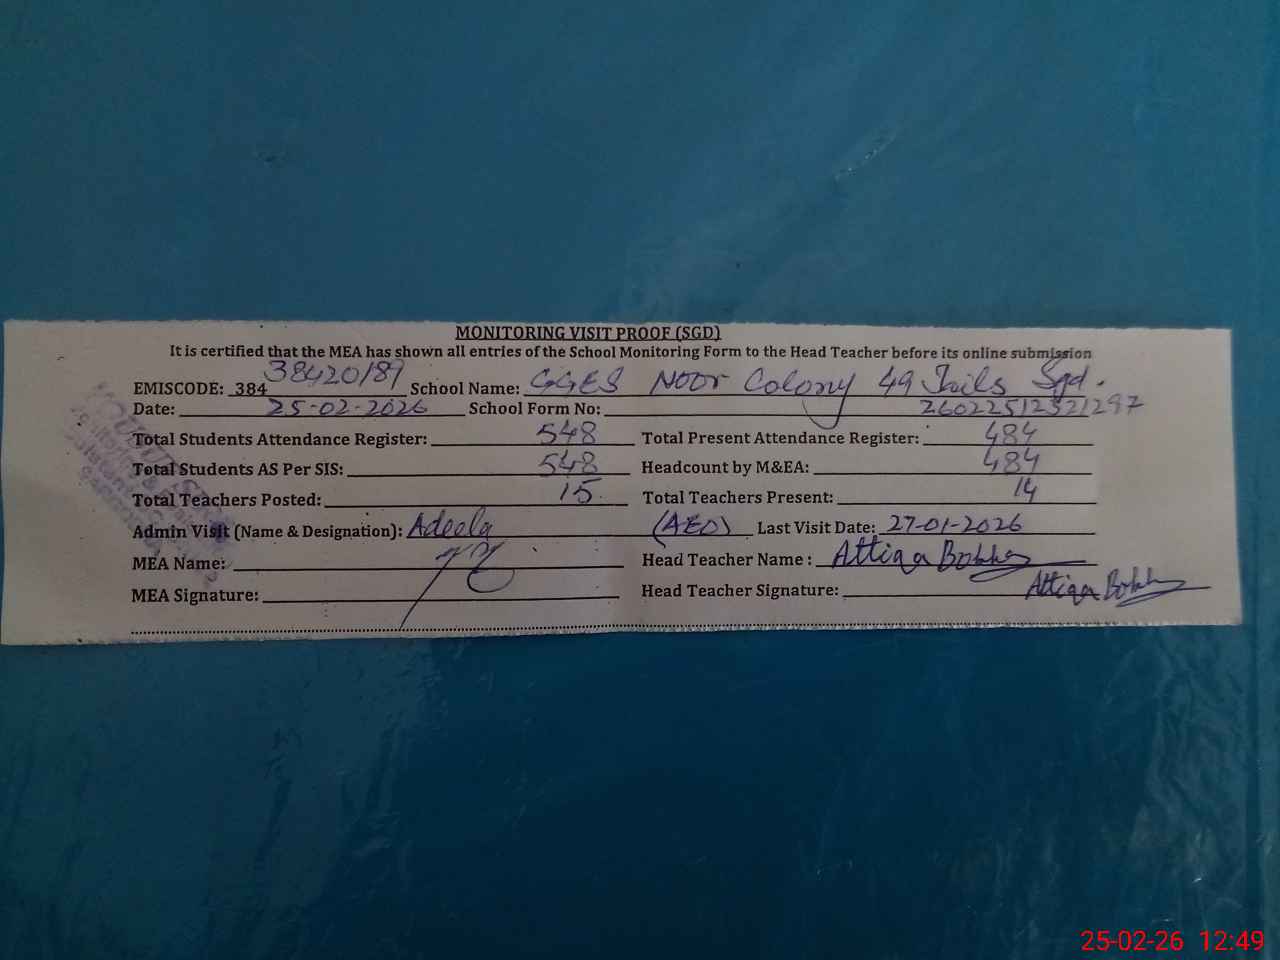 MONITORING VISIT PROOF (SGD)
It is certified that the MEA has shown all entries of the School Monitoring Form to the Head Teacher before its online submission
EMISCODE: 384 38420189 School Name: GGES Noor Colony 49 Tails Sgd.
Date: 25-02-2026 School Form No:
Total Students Attendance Register: 548 Total Present Attendance Register: 484
Total Students AS Per SIS: 548 Headcount by M&EA: 484
Total Teachers Posted: 15 Total Teachers Present: 14
Admin Visit (Name & Designation): Adeela (AEO) Last Visit Date: 27-01-2026
MEA Name: Head Teacher Name : Attiqa
MEA Signature: Head Teacher Signature: Attiqa
25-02-26 12:49